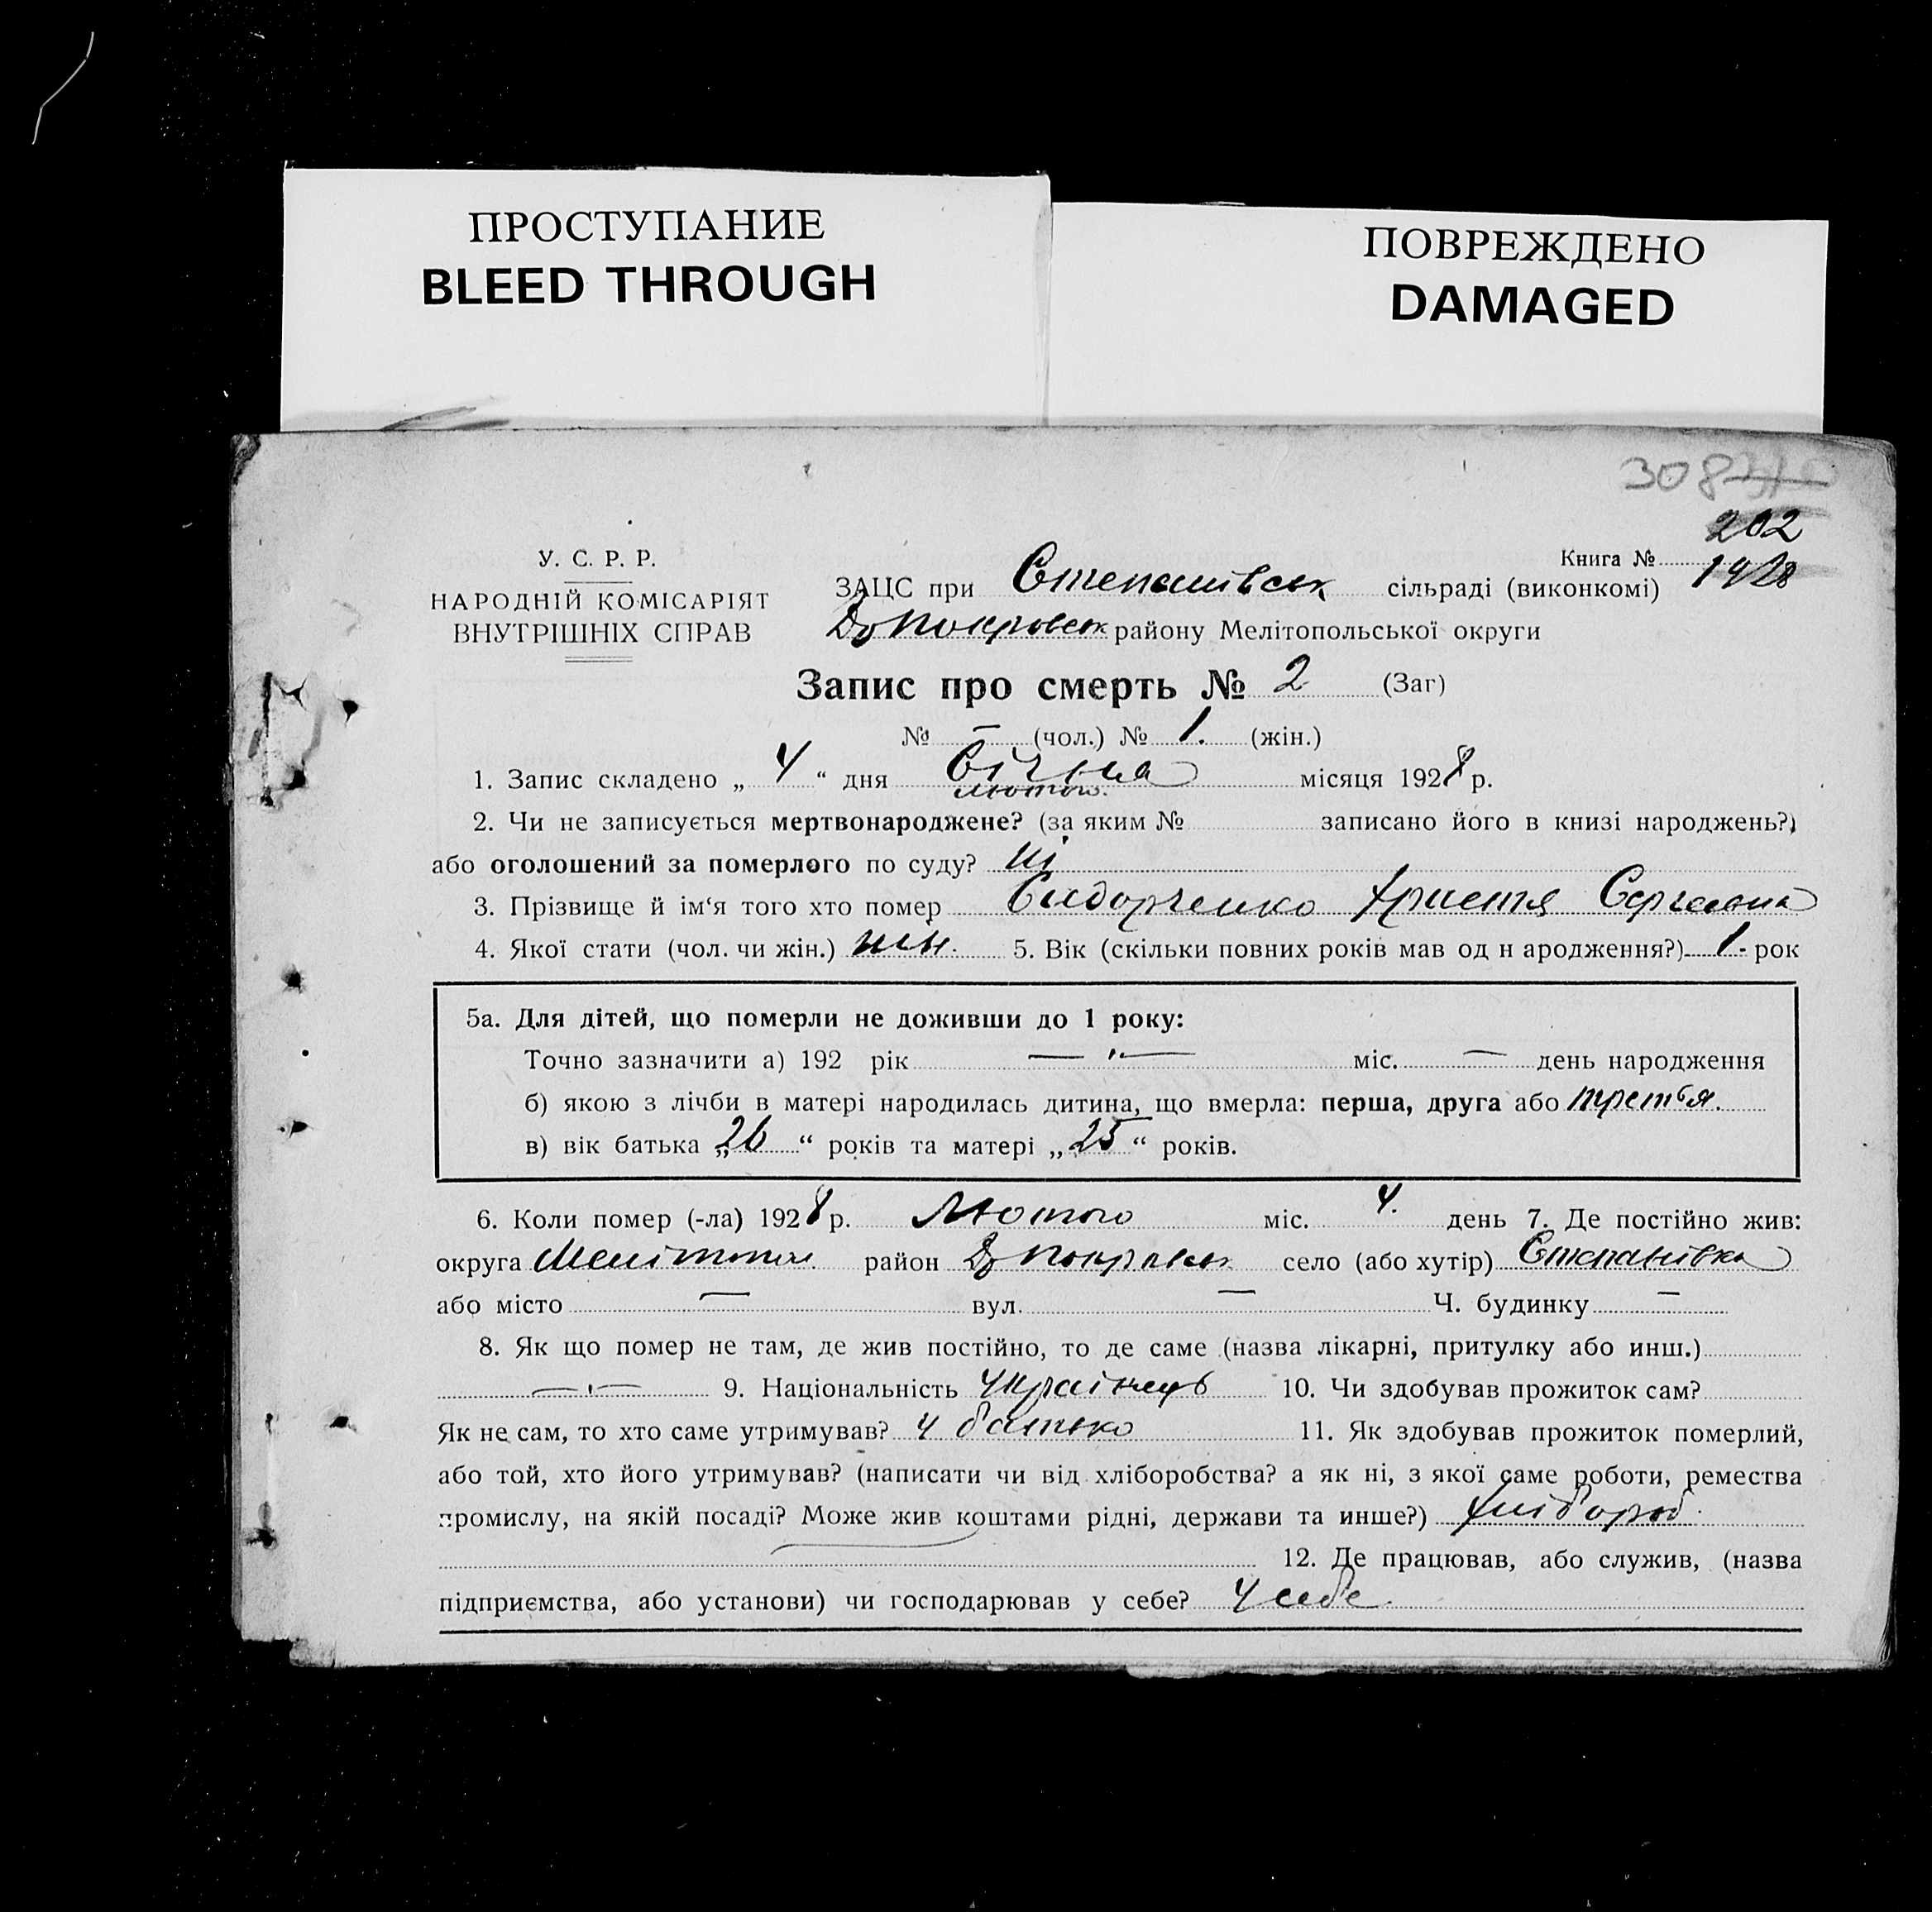 ПРОСТУПАНИЕ
BLEED THROUGH
ПОВРЕЖДЕНО
DAMAGED
308
202
У. С. Р. Р.
НАРОДНІЙ КОМІСАРІЯТ
ВНУТРІШНІХ СПРАВ
Книга №
1928
ЗАЦС при Степанівськ сільраді (виконкомі)
Покровськ району Мелітопольської округи
Запис про смерть № 2 (Заг)
№ — (чол.) № 1. (жін.)
1. Запис складено „ 4 “ дня Січня місяця 1928 р.
лютого.
2. Чи не записується мертвонароджене? (за яким № записано його в книзі народжень?)
або оголошений за померлого по суду? ні
3. Прізвище й ім‘я того хто помер Сидорченко Христя Сергеевна
4. Якої стати (чол. чи жін.) жін. 5. Вік (скільки повних років мав од н ародження?) 1 - рок
5а. Для дітей, що померли не доживши до 1 року:
Точно зазначити а) 192 рік — „ — міс. — день народження
б) якою з лічби в матері народилась дитина, що вмерла: перша, друга або третья.
в) вік батька „ 26 “ років та матері „ 25 “ років.
6. Коли помер (-ла) 1928 р. Лютого міс. 4. день 7. Де постійно жив:
округа Мелітопол. район Покровськ село (або хутір) Степанівка
або місто — вул. — Ч. будинку —
8. Як що помер не там, де жив постійно, то де саме (назва лікарні, притулку або инш.)
— „ — 9. Національність Українець 10. Чи здобував прожиток сам?
Як не сам, то хто саме утримував? у батько 11. Як здобував прожиток померлий,
або той, хто його утримував? (написати чи від хліборобства? а як ні, з якої саме роботи, ремества
промислу, на якій посаді? Може жив коштами рідні, держави та инше?) хлібороб.
12. Де працював, або служив, (назва
підприємства, або установи) чи господарював у себе? У себе.